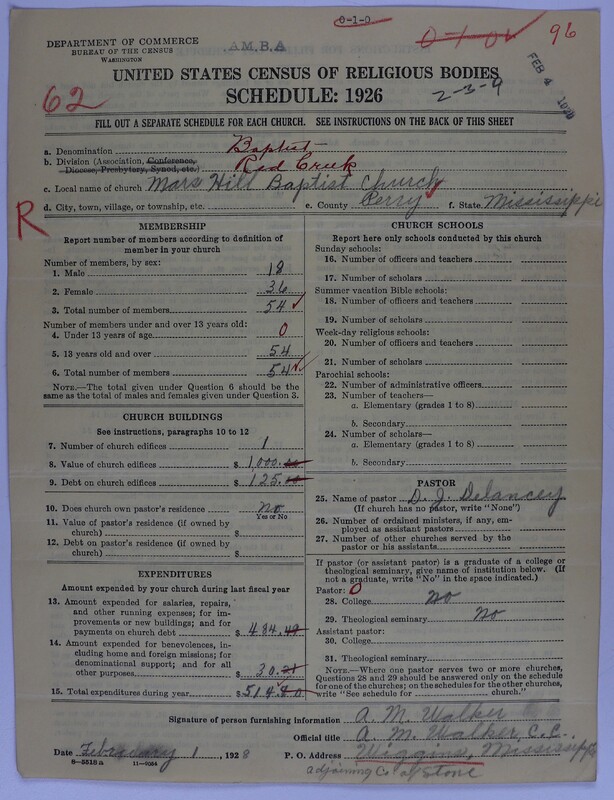 0-1-0
DEPARTMENT OF COMMERCE
BUREAU OF THE CENSUS
WASHINGTON
A.M.B.A
0-1-0
96
FEB 4
UNITED STATES CENSUS OF RELIGIOUS BODIES
62
SCHEDULE: 1926
2-3-9
FILL OUT A SEPARATE SCHEDULE FOR EACH CHURCH. SEE INSTRUCTIONS ON THE BACK OF THIS SHEET
a. Denomination Baptist
b. Division (Association, Conference, Diocese, Presbytery, Synod, etc.) Red Creek
c. Local name of church Mars Hill Baptist Church
d. City, town, village, or township, etc. e. County Perry f. State Mississippi
R
MEMBERSHIP
Report number of members according to definition of
member in your church
Number of members, by sex:
1. Male 18
2. Female 36
3. Total number of members 54
Number of members under and over 13 years old:
4. Under 13 years of age 0
5. 13 years old and over 54
6. Total number of members 54
NOTE.—The total given under Question 6 should be the
same as the total of males and females given under Question 3.
CHURCH BUILDINGS
See instructions, paragraphs 10 to 12
7. Number of church edifices 1
8. Value of church edifices $ 1,000.00
9. Debt on church edifices $ 125.00
10. Does church own pastor's residence no
Yes or No
11. Value of pastor's residence (if owned by
church) $
12. Debt on pastor's residence (if owned by
church) $
EXPENDITURES
Amount expended by your church during last fiscal year
13. Amount expended for salaries, repairs,
and other running expenses; for im-
provements or new buildings; and for
payments on church debt $ 484.
14. Amount expended for benevolences, in-
cluding home and foreign missions; for
denominational support; and for all
other purposes 30.
15. Total expenditures during year $ 514.
CHURCH SCHOOLS
Report here only schools conducted by this church
Sunday schools:
16. Number of officers and teachers
17. Number of scholars
Summer vacation Bible schools:
18. Number of officers and teachers
19. Number of scholars
Week-day religious schools:
20. Number of officers and teachers
21. Number of scholars
Parochial schools:
22. Number of administrative officers
23. Number of teachers—
a. Elementary (grades 1 to 8)
b. Secondary
24. Number of scholars—
a. Elementary (grades 1 to 8)
b. Secondary
PASTOR
25. Name of pastor D. J. Delancey
(If church has no pastor, write "None")
26. Number of ordained ministers, if any, em-
ployed as assistant pastors
27. Number of other churches served by the
pastor or his assistants
If pastor (or assistant pastor) is a graduate of a college or
theological seminary, give name of institution below. (If
not a graduate, write "No" in the space indicated.)
Pastor: 0
28. College no
29. Theological seminary No
Assistant pastor:
30. College
31. Theological seminary
NOTE.—Where one pastor serves two or more churches,
Questions 28 and 29 should be answered only on the schedule
for one of the churches; on the schedules for the other churches,
write "See schedule for church."
Signature of person furnishing information A. M. Walker
Official title A. M. Walker, C.C.
Date February 1, 1928 P. O. Address Wiggins, Mississippi
8-5518a 11-9054
adjoining Co of Stone